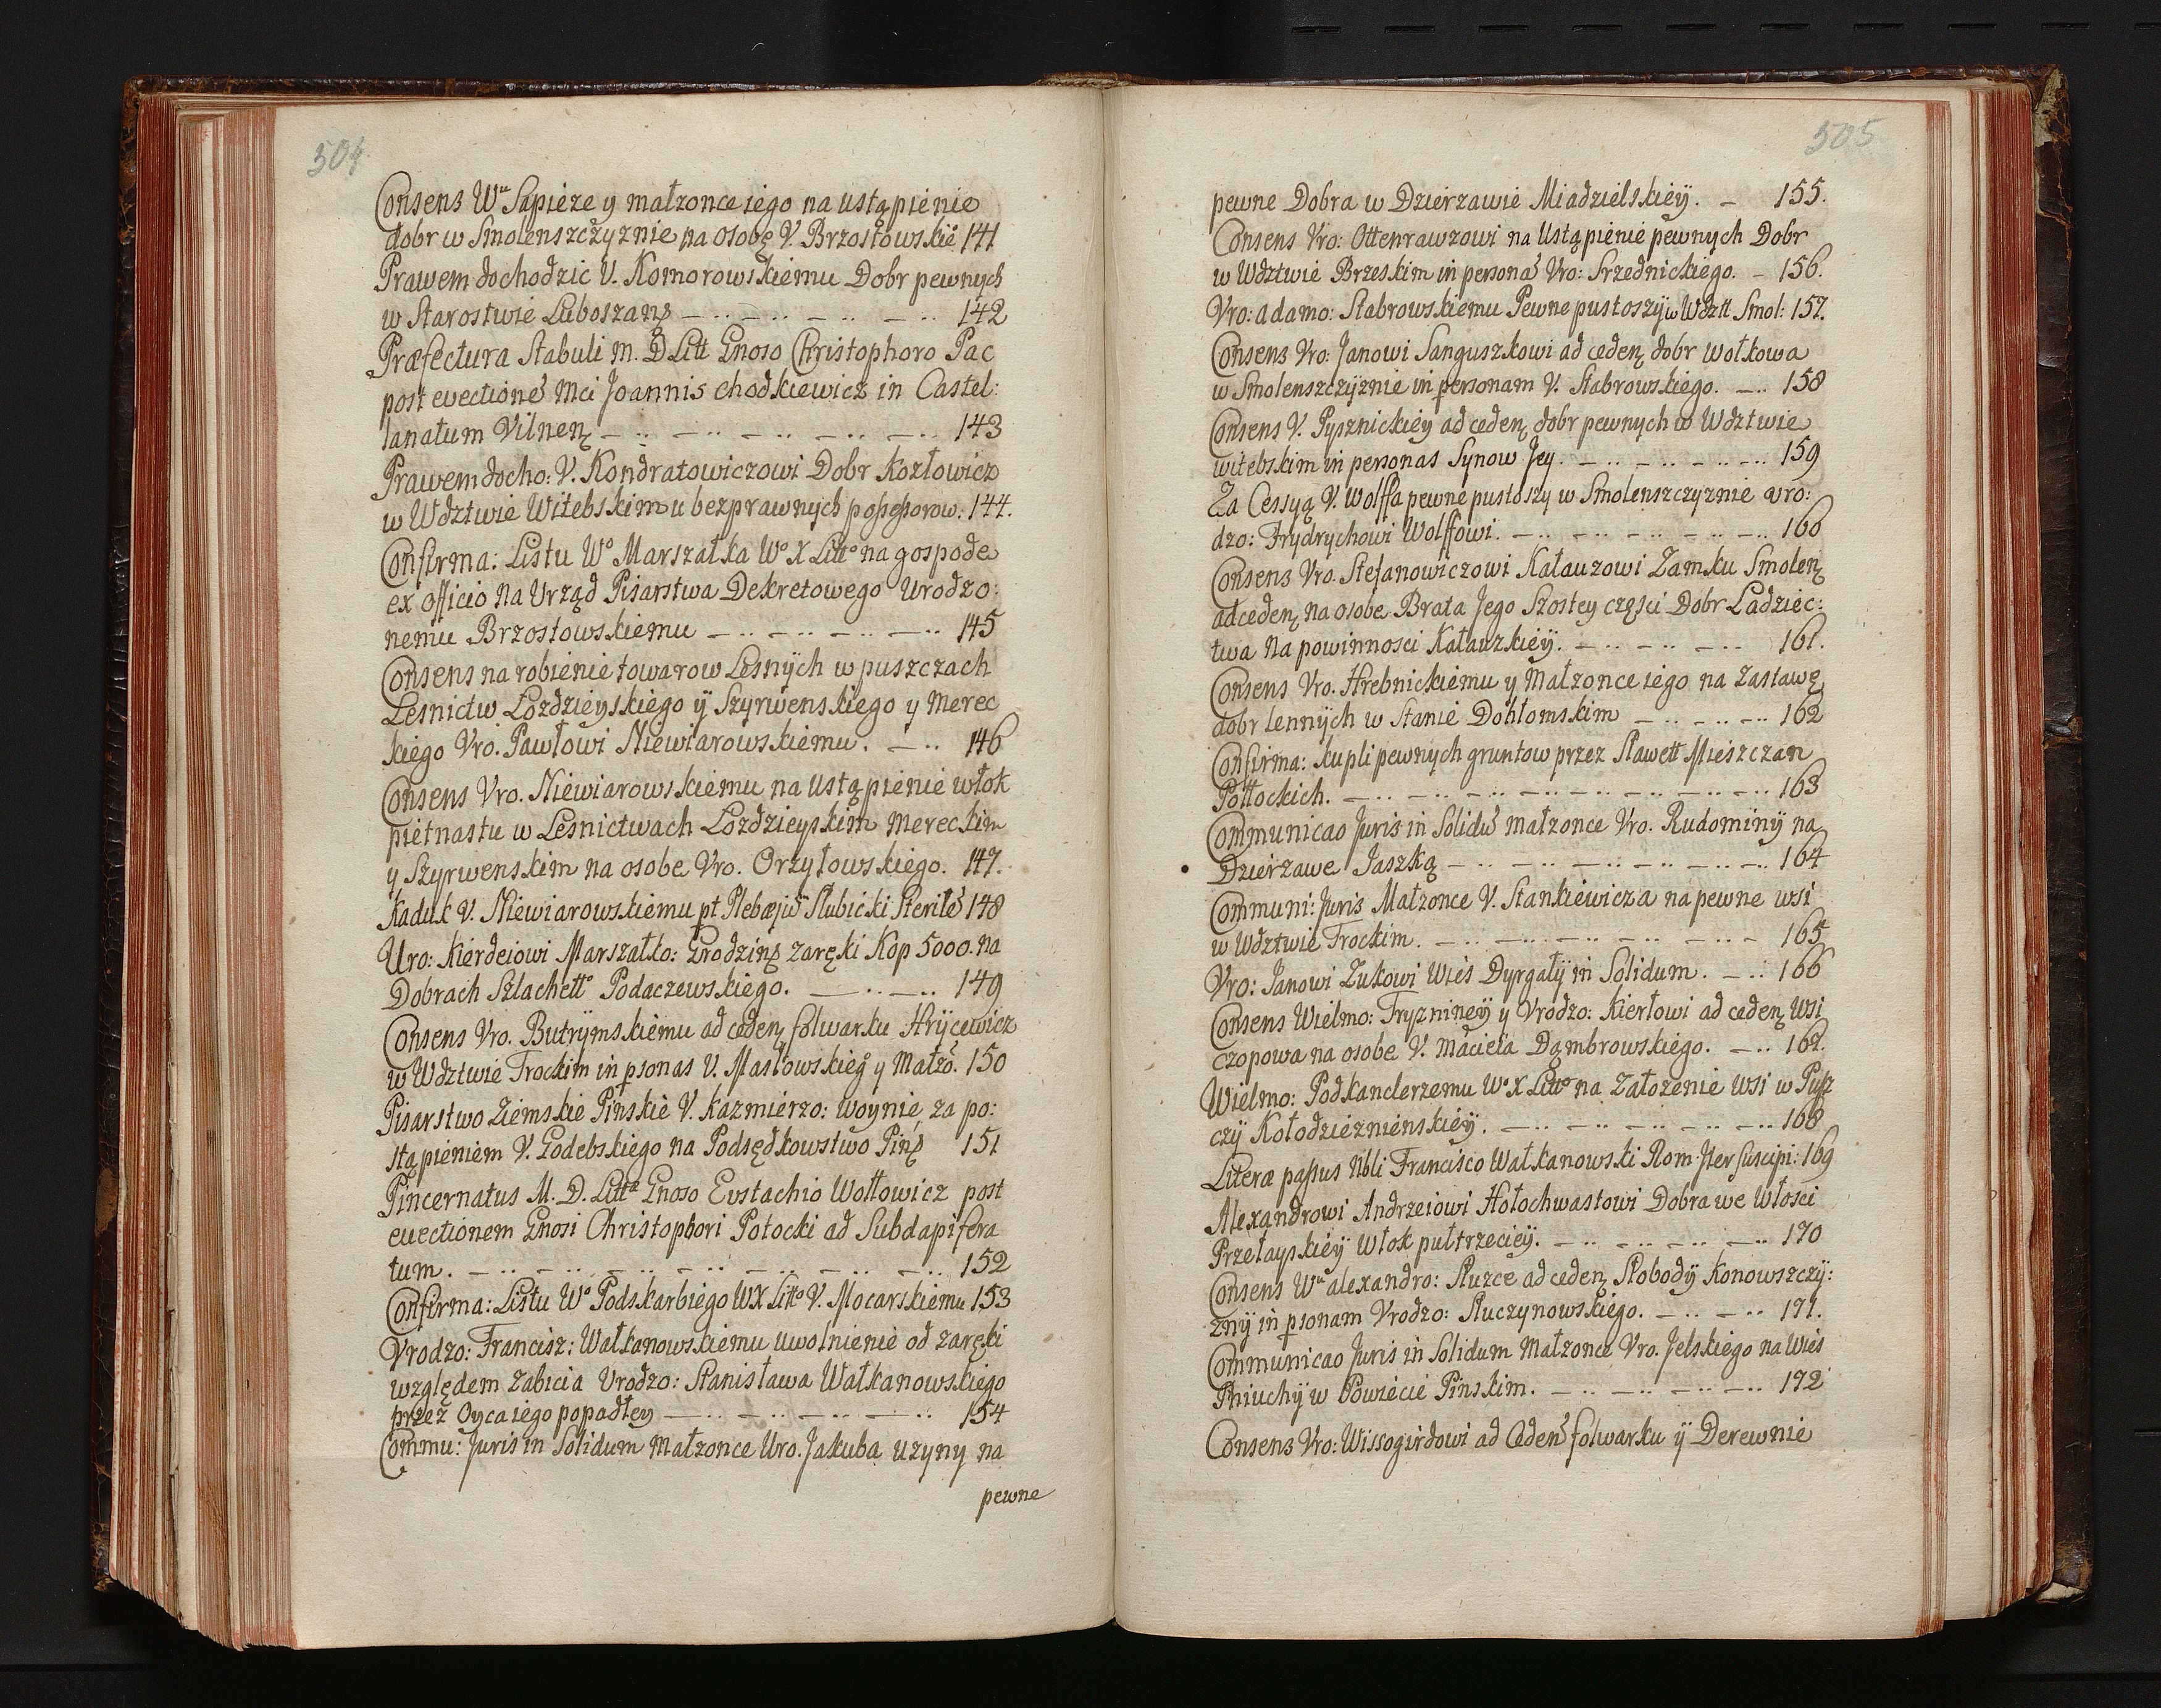 504.
Consens Wu Sapieze y małzonce iego na ustąpienie
dobr w Smolenszczyznie na osobę V. Brzostowskie 141
Prawem dochodzic V. Komorowskiemu Dobr pewnych
w Starostwie Luboszanß — .. — .. — .. — .. 142
Præfectura Stabuli M. D Litt Gnoso Christophoro Pac
post evectione Mci Joannis Chodkiewicz in Castel:
lanatum Vilnenß — .. — .. — .. — .. — .. 143
Prawem docho: V. Kondratowiczowi Dobr Kozłowicz
w Wdztwie Witebskim u bezprawnych poßeßorow. 144.
Confirma: Listu Wo Marszałka Wo X Litto na gospode
ex officio na Urząd Pisarstwa Dekretowego Urodzo:
nemu Brzostowskiemu — .. — .. — .. — .. 145
Consens na robienie towarow Lesnÿch w puszczach
Lesnictw Łozdzieyskiego ÿ Szyrwenskiego y Merec
kiego Vro. Pawłowi Niewiarowskiemu. — .. 146
Consens Vro. Niewiarowskiemu na ustąpienie włok
piętnastu w Lesnictwach Łozdzieyskim Mereckim
y Szyrwenskim na osobe Vro. Orzyłowskiego. 147.
Kaduk V. Niewiarowskiemu pt Plebæjū Słubicki Sterile 148
Uro: Kierdeiowi Marszałko: Grodzinß zaręki Kop 5000. na
Dobrach Szlachetto Podaczewskiego. — .. — .. 149
Consens Vro. Butrÿmskiemu ad cedenß folwarku Hrÿcewicz
w Wdztwie Trockim in psonas V. Masłowskieg y Małzo. 150
Pisarstwo Ziemskie Pinskie V. Kazmierzo: Woynie, za po:
stąpieniem V. Godebskiego na Podsędkowstwo Pinß 151
Pincernatus M. D. Litta Gnoso Eustachio Wołłowicz post
euectionem Gnosi Christophori Potocki ad Subdapifera
tum. — .. — .. — .. — .. — .. — .. — .. 152
Confirma: Listu Wo Podskarbiego WX Litto V. Mocarskiemu 153
Vrodzo: Francisz: Wałkanowskiemu uwolnienie od zaręki
względem zabicia Urodzo: Stanisława Wałkanowskiego
przez Oyca iego popadłey — .. — .. — .. — .. 154
Commu: Juris in Solidum Małzonce Uro. Jakuba Uzyny na
pewne
505
pewne Dobra w Dzierzawie Miadzielskiéÿ. — 155.
Consens Vro: Ottenrawzowi na Ustąpienie pewnych Dobr
w Wdztwie Brzeskim in persona Vro: Srzednickiego. — 156.
Vro: Adamo: Stabrowskiemu Pewne pustoszy w Wdztt Smol: 157.
Consens Vro: Janowi Sanguszkowi ad cedenß dobr Wołkowa
w Smolenszczÿznie in personam V. Stabrowskiego. — .. 158
Consens V. Pysznickiey ad cedenß dobr pewnych w Wdztwie
witebskim in personas Synow Jey. — .. — .. — .. — .. 159
Za Cessyą V. Wolffa pewne pustoszy w Smolenszczyznie Vro:
dzo: Frydrychowi Wolffowi. — .. — .. — .. — .. — .. 160
Consens Vro. Stefanowiczowi Kałauzowi Zamku Smolenß
ad cedenß na osobe Brata Jego Szostey częsci Dobr Ladziec:
twa na powinnosci Kałauzkiéÿ. — .. — .. — .. 161.
Consens Vro. Hrebnickiemu y Małzonce iego na Zastawę
dobr lennÿch w Stanie Dohłomskim — .. — .. — .. 162
Confirma: Kupli pewnych gruntow przez Sławett Mieszczan
Połłockich. — .. — .. — .. — .. — .. — .. — .. — .. 163
Communicao Juris in Solidū małzonce Vro. Rudominÿ na
Dzierzawe Jaszką — .. — .. — .. — .. — .. — .. 164
Communi: Juris Małzonce V. Stankiewicza na pewne wsi
w Wdztwie Trockim. — .. — .. — .. — .. — .. — 165
Vro: Janowi Zukowi Wies Dyrgałÿ in Solidum. — .. 166
Consens Wielmo: Fryznineÿ y Vrodzo: Kierłowi ad cedenß Wsi
czopowa na osobe V. Macieia Dąmbrowskiego. — .. 167.
Wielmo: Podkanclerzemu Wo X Litto na Załozenie Wsi w Pusz
czÿ Kołodzieznienskiéÿ. — .. — .. — .. — .. — .. 168
Literæ paßus Nbli Francisco Wałkanowski Rom. Iter suscipi: 169
Alexandrowi Andrzeiowi Hołochwastowi Dobra we Włosci
Przełayskiéÿ Włok pułtrzeciéÿ. — .. — .. — .. — .. 170
Consens Wu Alexandro: Słuzce ad cedenß Słobodÿ Konowszczÿ:
znÿ in psonam Vrodzo: Słuczynowskiego. — .. — .. 171.
Communicao Juris in Solidum Małzonce Vro. Jelskiego na Wies
Phiuchÿ w Powiecie Pinskim. — .. — .. — .. — .. 172
Consens Vro: Wissogirdowi ad Ceden folwarku ÿ Derewnie